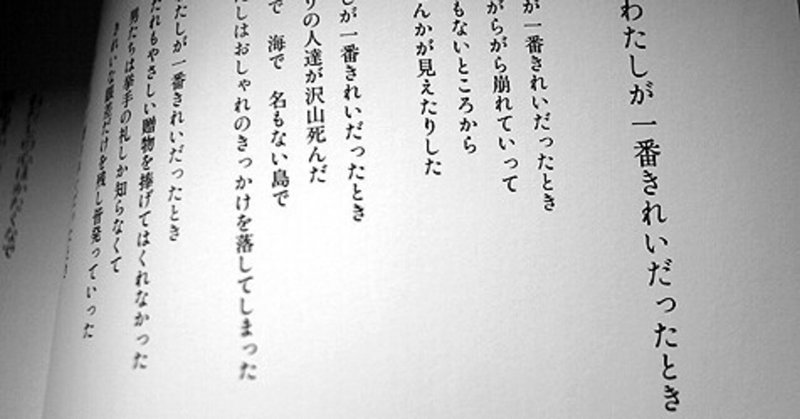 わたしが一番きれいだったとき
が一番きれいだったとき
がらがら崩れていって
もないところから
んかが見えたりした
しが一番きれいだったとき
りの人達が沢山死んだ
で 海で 名もない島で
しはおしゃれのきっかけを落してしまった
たしが一番きれいだったとき
れもやさしい贈物を捧げてはくれなかった
男たちは挙手の礼しか知らなくて
きれいな眼差だけを残し皆発っていった